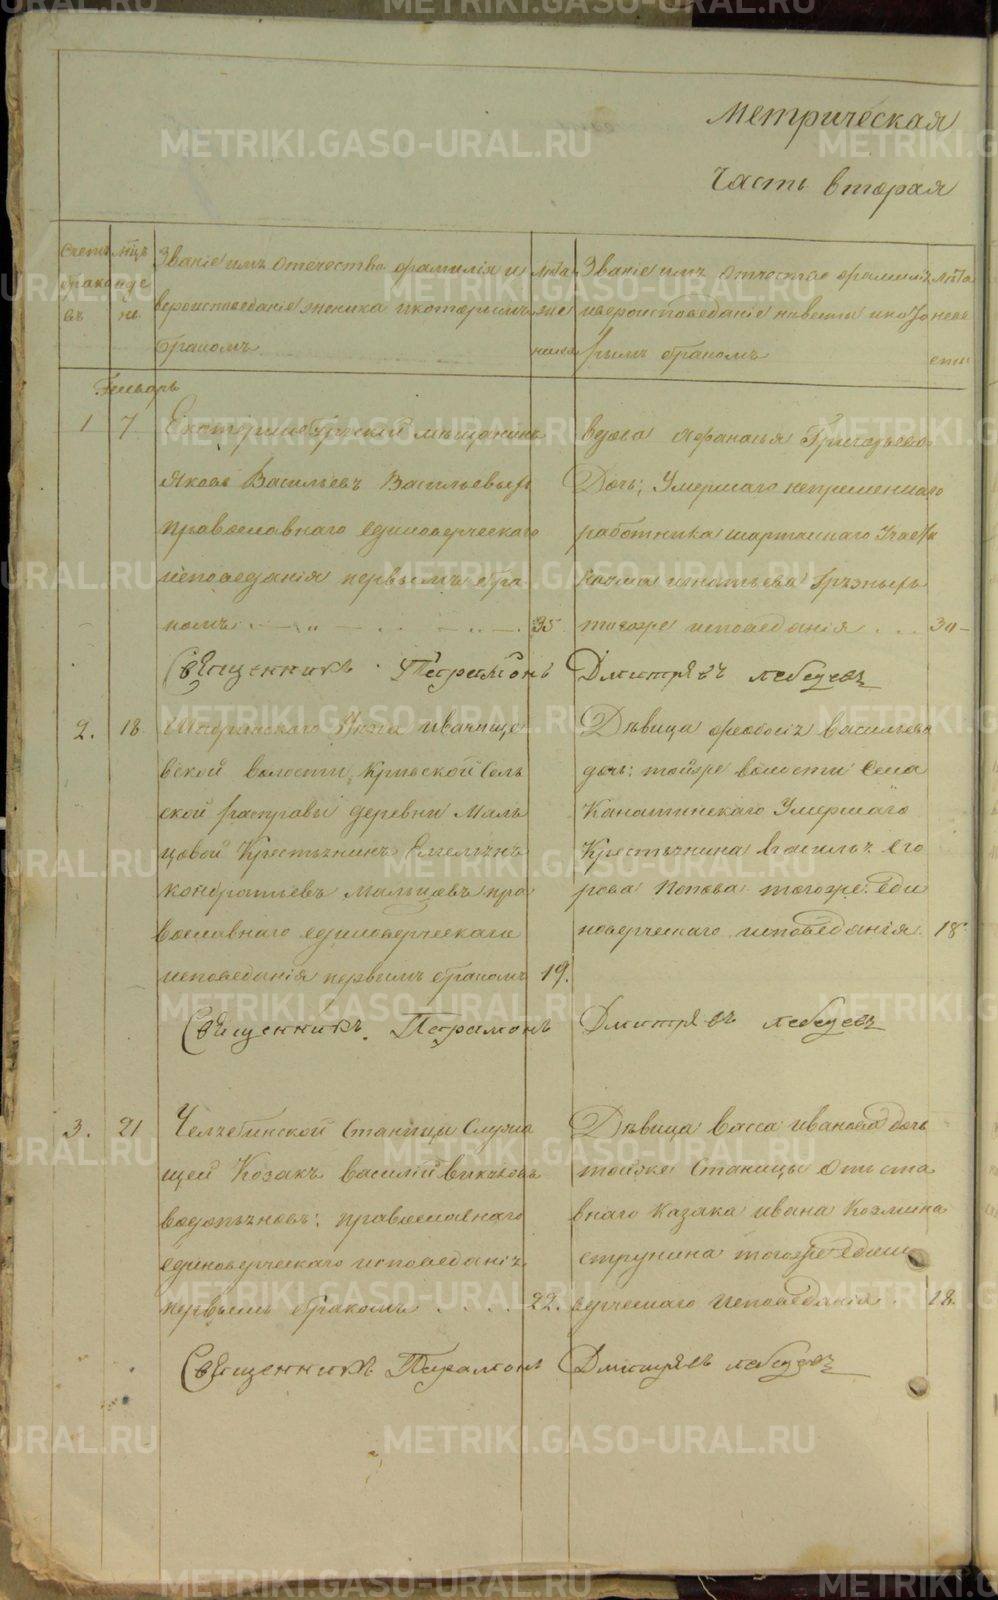 Метрическая
Часть вторая
Счетъ браковъ
Мцъ и дне
Званіе имъ Отечество фамилія и вероисповеданіе жениха и которымъ бракомъ
Лѣта жениха
Званіе имъ Отчество фамилія и вероисповеданіе невести и которымъ бракомъ
лѣта невести
Генварь
1 7
Екатеринобургскій мѣщанинъ
Яковъ Васильевъ Васильевыхъ
православнаго единоверческаго
исповеданія первымъ бра
комъ 35
вдова Афанасья Григорьева
Дочь; Умершаго непременнаго
работника шарташскаго
игнатьева
тогоже исповеданія 30
Священникъ Парамонъ Дмитрѣевъ лебедевъ
2. 18
Шадринскаго Уезда иванище
вской волости, Кривской Сель
ской расправы деревни Маль
цовой Крестьянинъ Емельянъ
кондратьевъ Мальцовъ пра
вославнаго единоверческаго
исповеданія первымъ бракомъ 19.
Дѣвица феодосія васильева
дочь: тойже волости Села
Канашинскаго Умершаго
Крестьянина Василья Его
рова Попова тогоже: Еди
новерческаго исповѣданія 18
Священникъ. Парамонъ Дмитрѣевъ лебедевъ
3. 21
Челябинской Станицы Служа
щей Козакъ василій
водопьяновъ: православнаго
единоверческаго исповеданія
первымъ бракомъ 22.
Дѣвица Васса иванова дочь
тойже Станицы Отъста
внаго Казака ивана Козмина
струнина тогоже Едино
верческаго исповеданія 18.
Священникъ Парамонъ Дмитрѣевъ лебедевъ
METRIKI.GASO-URAL.RU